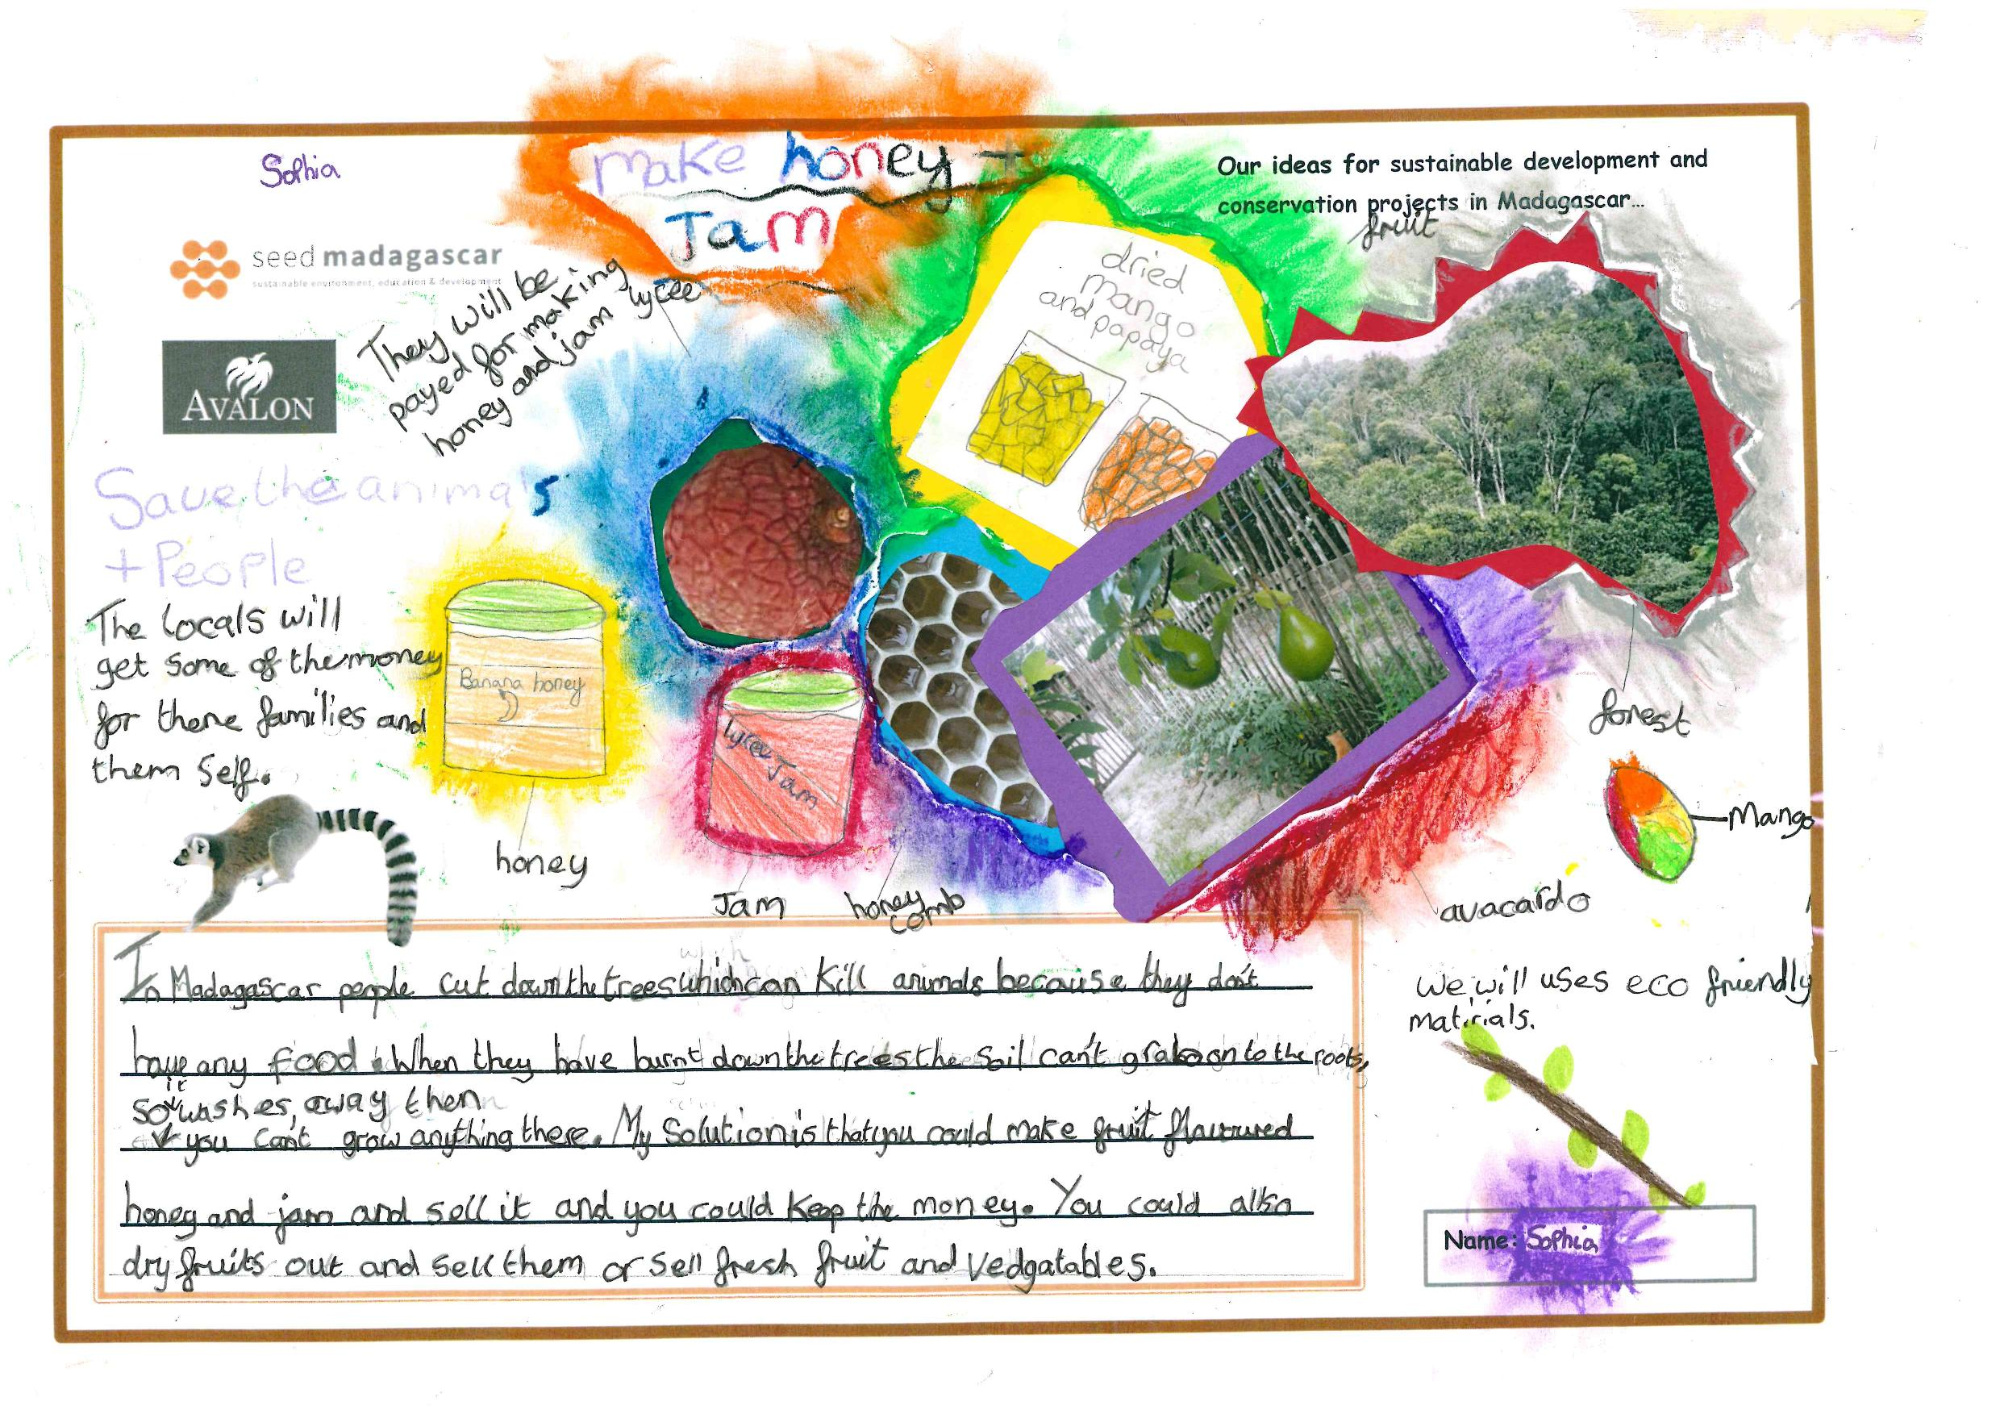 Sophia
make honey +
Jam
Our ideas for sustainable development and
conservation projects in Madagascar...
fruit
seed madagascar
sustainable environment, education & development
They will be
payed for making
honey and jam
lycee
dried
mango
and papaya
AVALON
Save the animals
+ People
The locals will
get some of the money
for there families and
them self.
Banana honey
lycee Jam
honey
Jam
honey
comb
forest
Mango
avacardo
we will uses eco friendly
matirials.
In Madagascar people cut down the trees which can kill animals because they don't
have any food. When they have burnt down the trees the soil can't grab on to the roots,
so it washes away then
you can't grow anything there. My Solution is that you could make fruit flavoured
honey and jam and sell it and you could keep the money. You could allso
dry fruits out and sell them or sell fresh fruit and vedgatables.
Name: Sophia